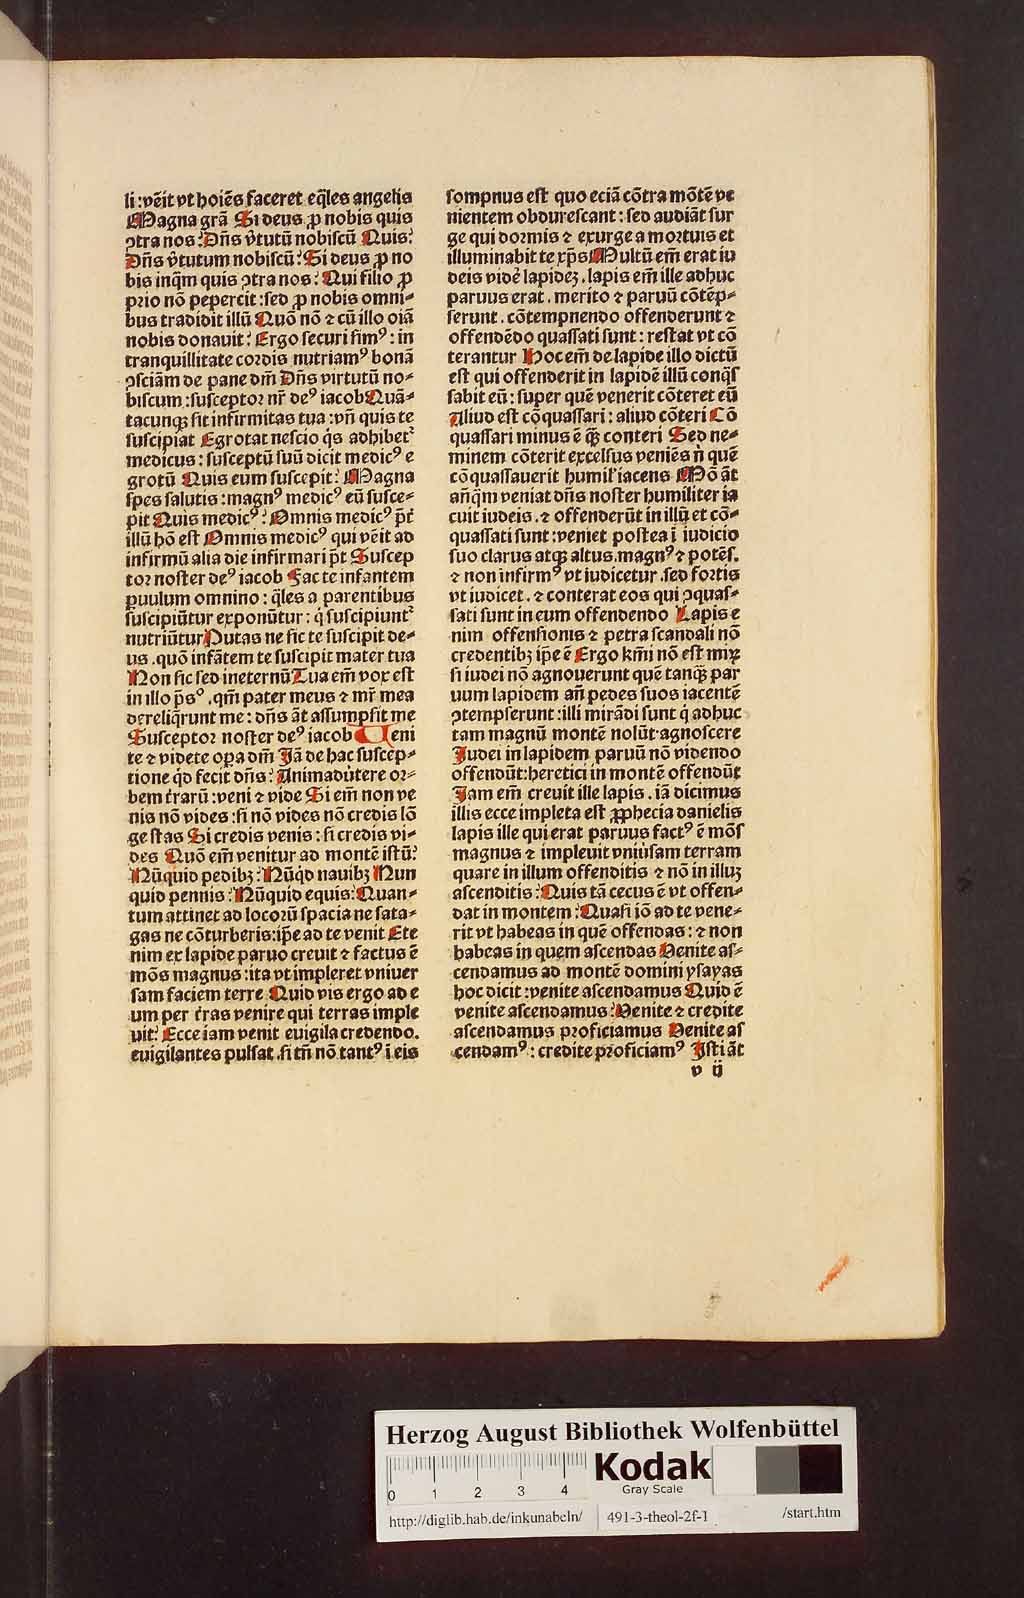 li :vēit vt hoiēs faceret eq̄les angelis
Magna grā Si deus ꝓ nobis quis
ꝯtra nos? Dn̄s v̓tutū nobiscū Quis?
Dn̄s v̓tutum nobiscū? Si deus ꝓ no
bis inq̄m quis ꝯtra nos? Qui filio ꝓ
prio nō pepercit :sed ꝓ nobis omni-
bus tradidit illū Quō nō ⁊ cū illo oīa
nobis donauit? Ergo securi simꝰ : in
tranquillitate cordis nutriamꝰ bonā
ꝯsciām de pane dm̄ Dn̄s virtutū no-
biscum :susceptor nr̄ deꝰ iacob Quā-
tacunqꝫ sit infirmitas tua :vn̄ quis te
suscipiat Egrotat nescio q̇s adhibet᷑
medicus : susceptū suū dicit medicꝰ e
grotū Quis eum suscepit? Magna
spes salutis :magnꝰ medicꝰ eū susce-
pit Quis medicꝰ? Omnis medicꝰ p̄t̄
illū hō est Omnis medicꝰ qui vēit ad
infirmū alia die infirmari p̄t Suscep
tor noster deꝰ iacob Fac te infantem
ꝑuulum omnino : q̄les a parentibus
suscipiūtur exponūtur : q̇ suscipiunt᷑
nutriūtur Putas ne sic te suscipit de-
us .quō infātem te suscipit mater tua
Non sic sed in eternū Tua em̄ vox est
in illo p̄sꝰ .qm̄ pater meus ⁊ mr̄ mea
dereliq̄runt me : dn̄s āt assumpsit me
Susceptor noster deꝰ iacob Ueni
te ⁊ videte oꝑa dm̄ Jā de hac suscep-
tione q̇d fecit dn̄s? Animadūtere or-
bem t̄rarū :veni ⁊ vide Si em̄ non ve
nis nō vides :si nō vides nō credis lō
ge stas Si credis venis : si credis vi-
des Quō em̄ venitur ad montē istū?
Nūquid pedibꝫ? Nūq̇d nauibꝫ Nun
quid pennis? Nūquid equis? Quan-
tum attinet ad locorū spacia ne sata-
gas ne cōturberis:ip̄e ad te venit Ete
nim ex lapide paruo creuit ⁊ factus ē
mōs magnus :ita vt impleret vniuer
sam faciem terre Quid vis ergo ad e
um per t̄ras venire qui terras imple
uit? Ecce iam venit euigila credendo.
euigilantes pulsat .si tn̄ nō tantꝰ i eis
sompnus est quo eciā cōtra mōtē ve
nientem obdurescant : sed audiāt sur
ge qui dormis ⁊ exurge a mortuis et
illuminabit te xp̄s Multū em̄ erat iu
deis vide᷑ lapideꝫ .lapis em̄ ille adhuc
paruus erat . merito ⁊ paruū cōtēp-
serunt . cōtempnendo offenderunt ⁊
offendēdo quassati sunt : restat vt cō
terantur Hoc em̄ de lapide illo dictū
est qui offenderit in lapidē illū conq̄s
sabit eū : super quē venerit cōteret eū
Aliud est cōquassari : aliud cōteri Cō
quassari minus ē qꝫ conteri Sed ne-
minem cōterit excelsus veniēs n̄ quē
cōquassauerit humil̓ iacens Mō āt
añq̄m veniat dn̄s noster humiliter ia
cuit iudeis .⁊ offenderūt in illū et cō-
quassati sunt :veniet postea ī iudicio
suo clarus atqꝫ altus.magnꝰ ⁊ potēs.
⁊ non infirmꝰ vt iudicetur .sed fortis
vt iudicet .⁊ conterat eos qui ꝯquas-
sati sunt in eum offendendo Lapis e
nim offensionis ⁊ petra scandali nō
credentibꝫ ip̄e ē Ergo km̄i nō est miꝝ
si iudei nō agnouerunt quē tanqꝫ par
uum lapidem an̄ pedes suos iacentē
ꝯtempserunt :illi mirādi sunt q̇ adhuc
tam magnū montē nolūt agnoscere
Judei in lapidem paruū nō videndo
offendūt:heretici in montē offendūt
Jam em̄ creuit ille lapis . iā dicimus
illis ecce impleta est ꝓphecia danielis
lapis ille qui erat paruus factꝰ ē mōs
magnus ⁊ impleuit vniusam terram
quare in illum offenditis ⁊ nō in illuꝫ
ascenditis? Quis tā cecus ē vt offen-
dat in montem? Quasi iō ad te vene-
rit vt habeas in quē offendas : ⁊ non
habeas in quem ascendas Venite as-
cendamus ad montē domini ysayas
hoc dicit :venite ascendamus Quid ē
venite ascendamus? Venite ⁊ credite
ascendamus proficiamus Venite as
cendamꝰ : credite proficiamꝰ Isti āt
v ij
Herzog August Bibliothek Wolfenbüttel
0 1 2 3 4
Kodak
Gray Scale
http://diglib.hab.de/inkunabeln/ 491-3-theol-2f-1 /start.htm